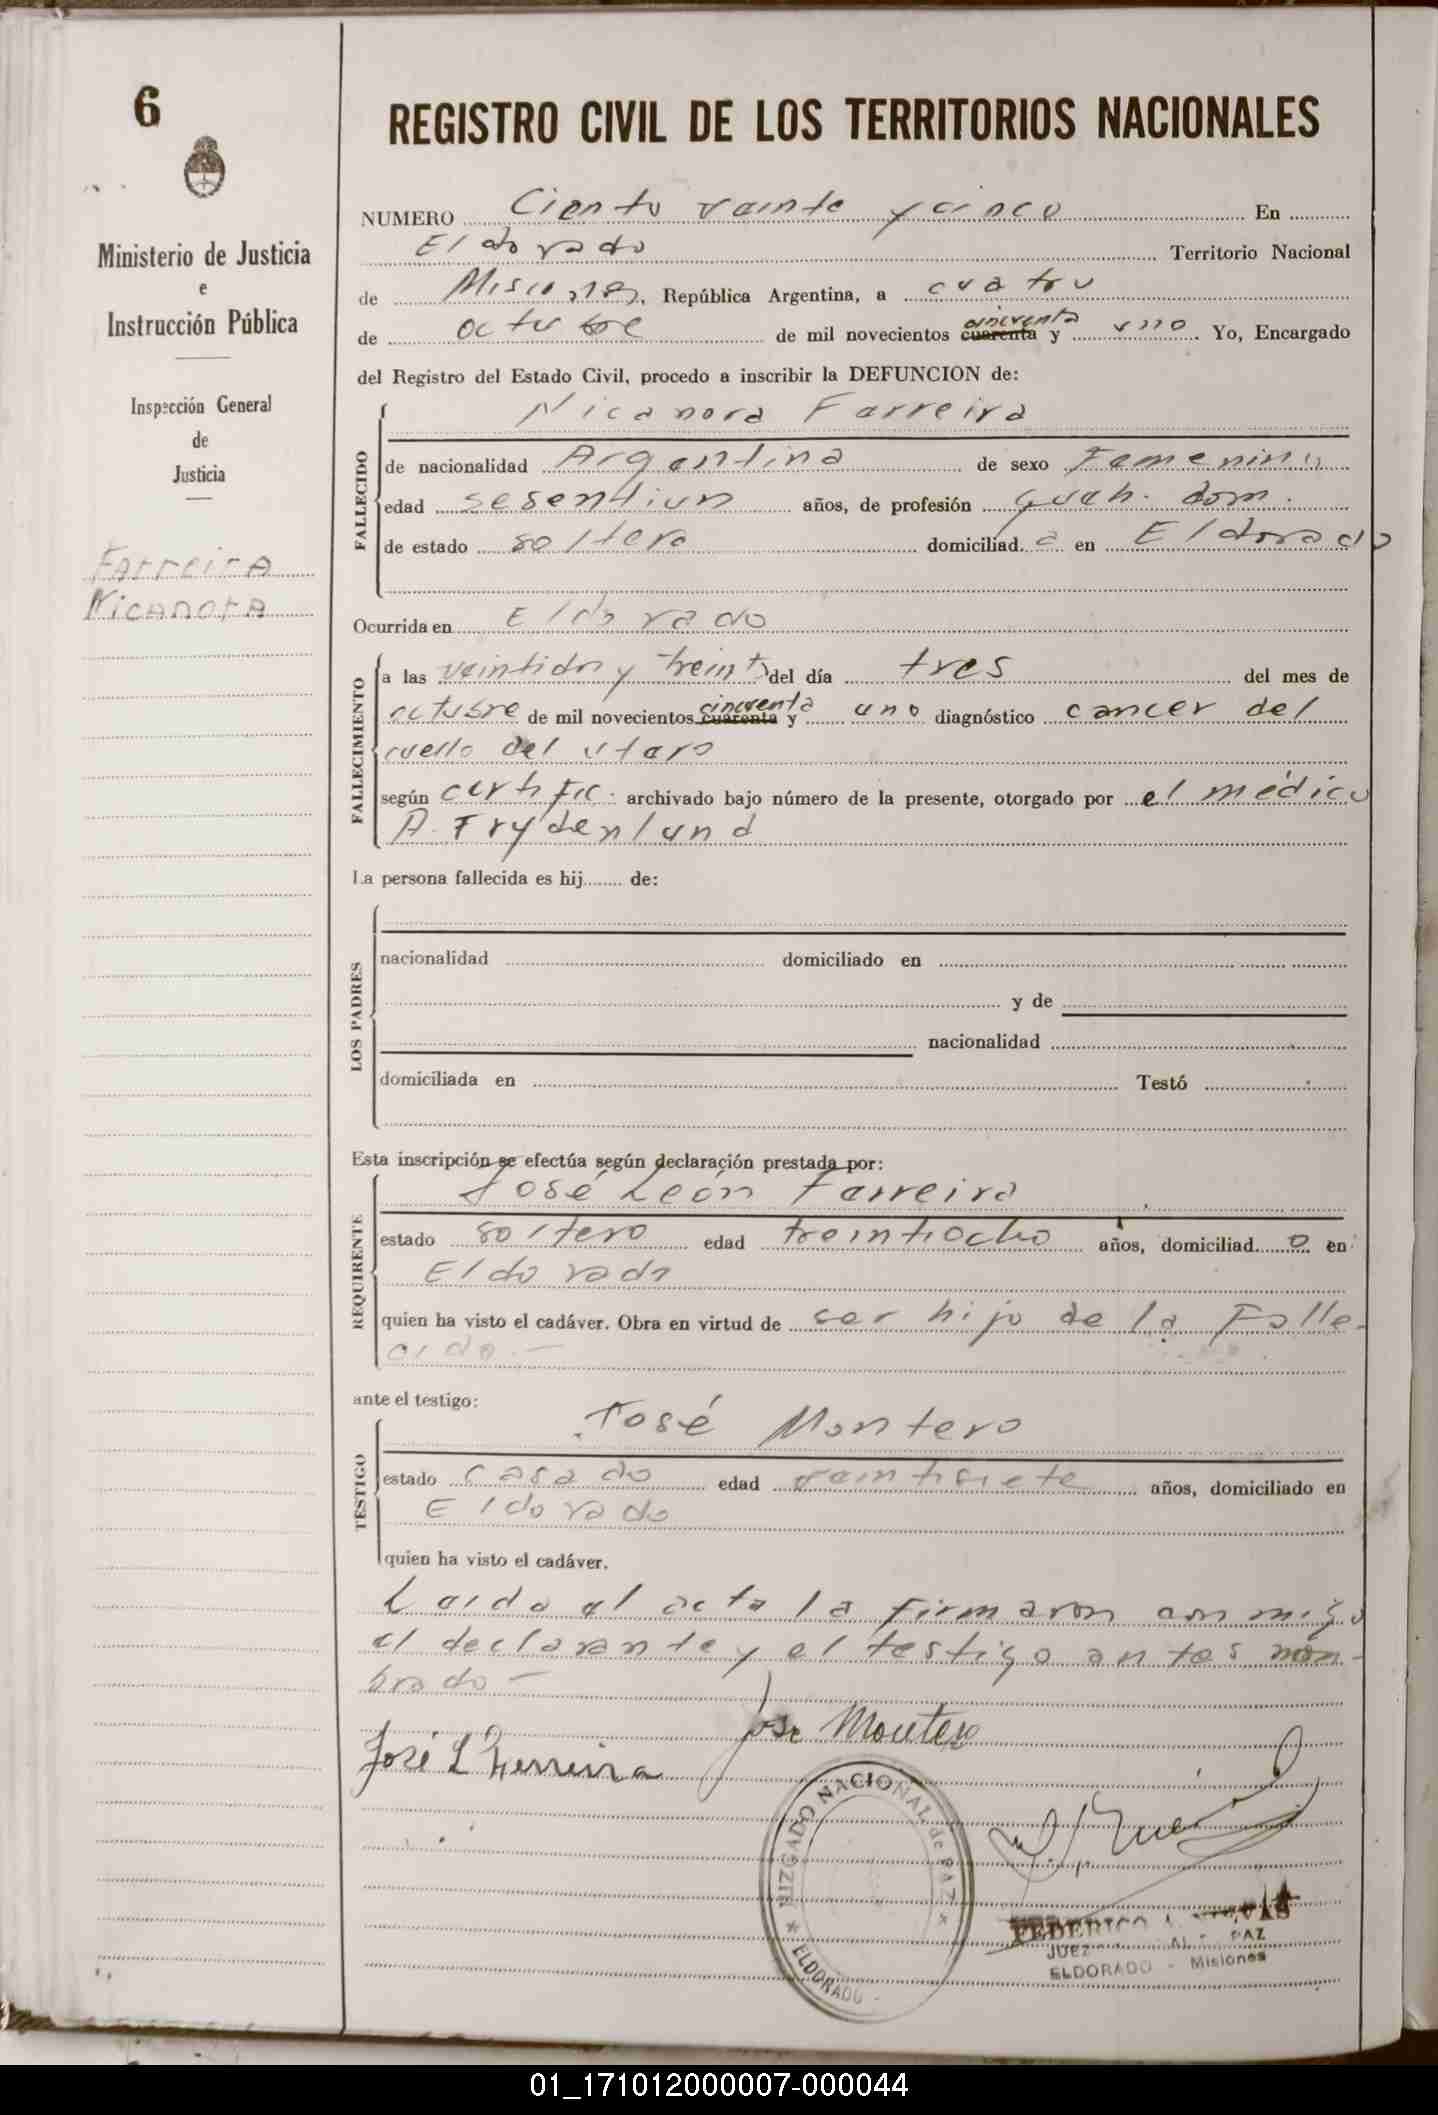 6
REGISTRO CIVIL DE LOS TERRITORIOS NACIONALES
Ministerio de Justicia
e
Instrucción Pública
Inspección General
de
Justicia
Farreira
Nicanora
NUMERO Ciento veinte y cinco En
Eldorado Territorio Nacional
de Misiones, República Argentina, a cuatro
de octubre de mil novecientos cincuenta cuarenta y uno. Yo, Encargado
del Registro del Estado Civil, procedo a inscribir la DEFUNCION de:
FALLECIDO
Nicanora Farreira
de nacionalidad Argentina de sexo Femenino
edad sesentiun años, de profesión queh. dom.
de estado soltera domiciliad a en Eldorado
Ocurrida en Eldorado
FALLECIMIENTO
a las veintidos y treinta del día tres del mes de
octubre de mil novecientos cincuenta cuarenta y uno diagnóstico cancer del
cuello del utero
según certific. archivado bajo número de la presente, otorgado por el médico
A. Frydenlund
La persona fallecida es hij de:
LOS PADRES
nacionalidad domiciliado en
y de
nacionalidad
domiciliada en Testó
Esta inscripción se efectúa según declaración prestada por:
REQUIRENTE
José León Farreira
estado soltero edad treintiocho años, domiciliad o en
Eldorado
quien ha visto el cadáver. Obra en virtud de ser hijo de la Falle-
cida.—
ante el testigo:
TESTIGO
José Montero
estado casado edad veintisiete años, domiciliado en
Eldorado
quien ha visto el cadáver.
Leida el acta la firmaron conmigo
el declarante y el testigo antes nom-
brado—
Jose Montero
José L Ferreira
JUZGADO NACIONAL de PAZ
ELDORADO
FEDERICO
JUEZ PAZ
ELDORADO - Misiones
01_171012000007-000044